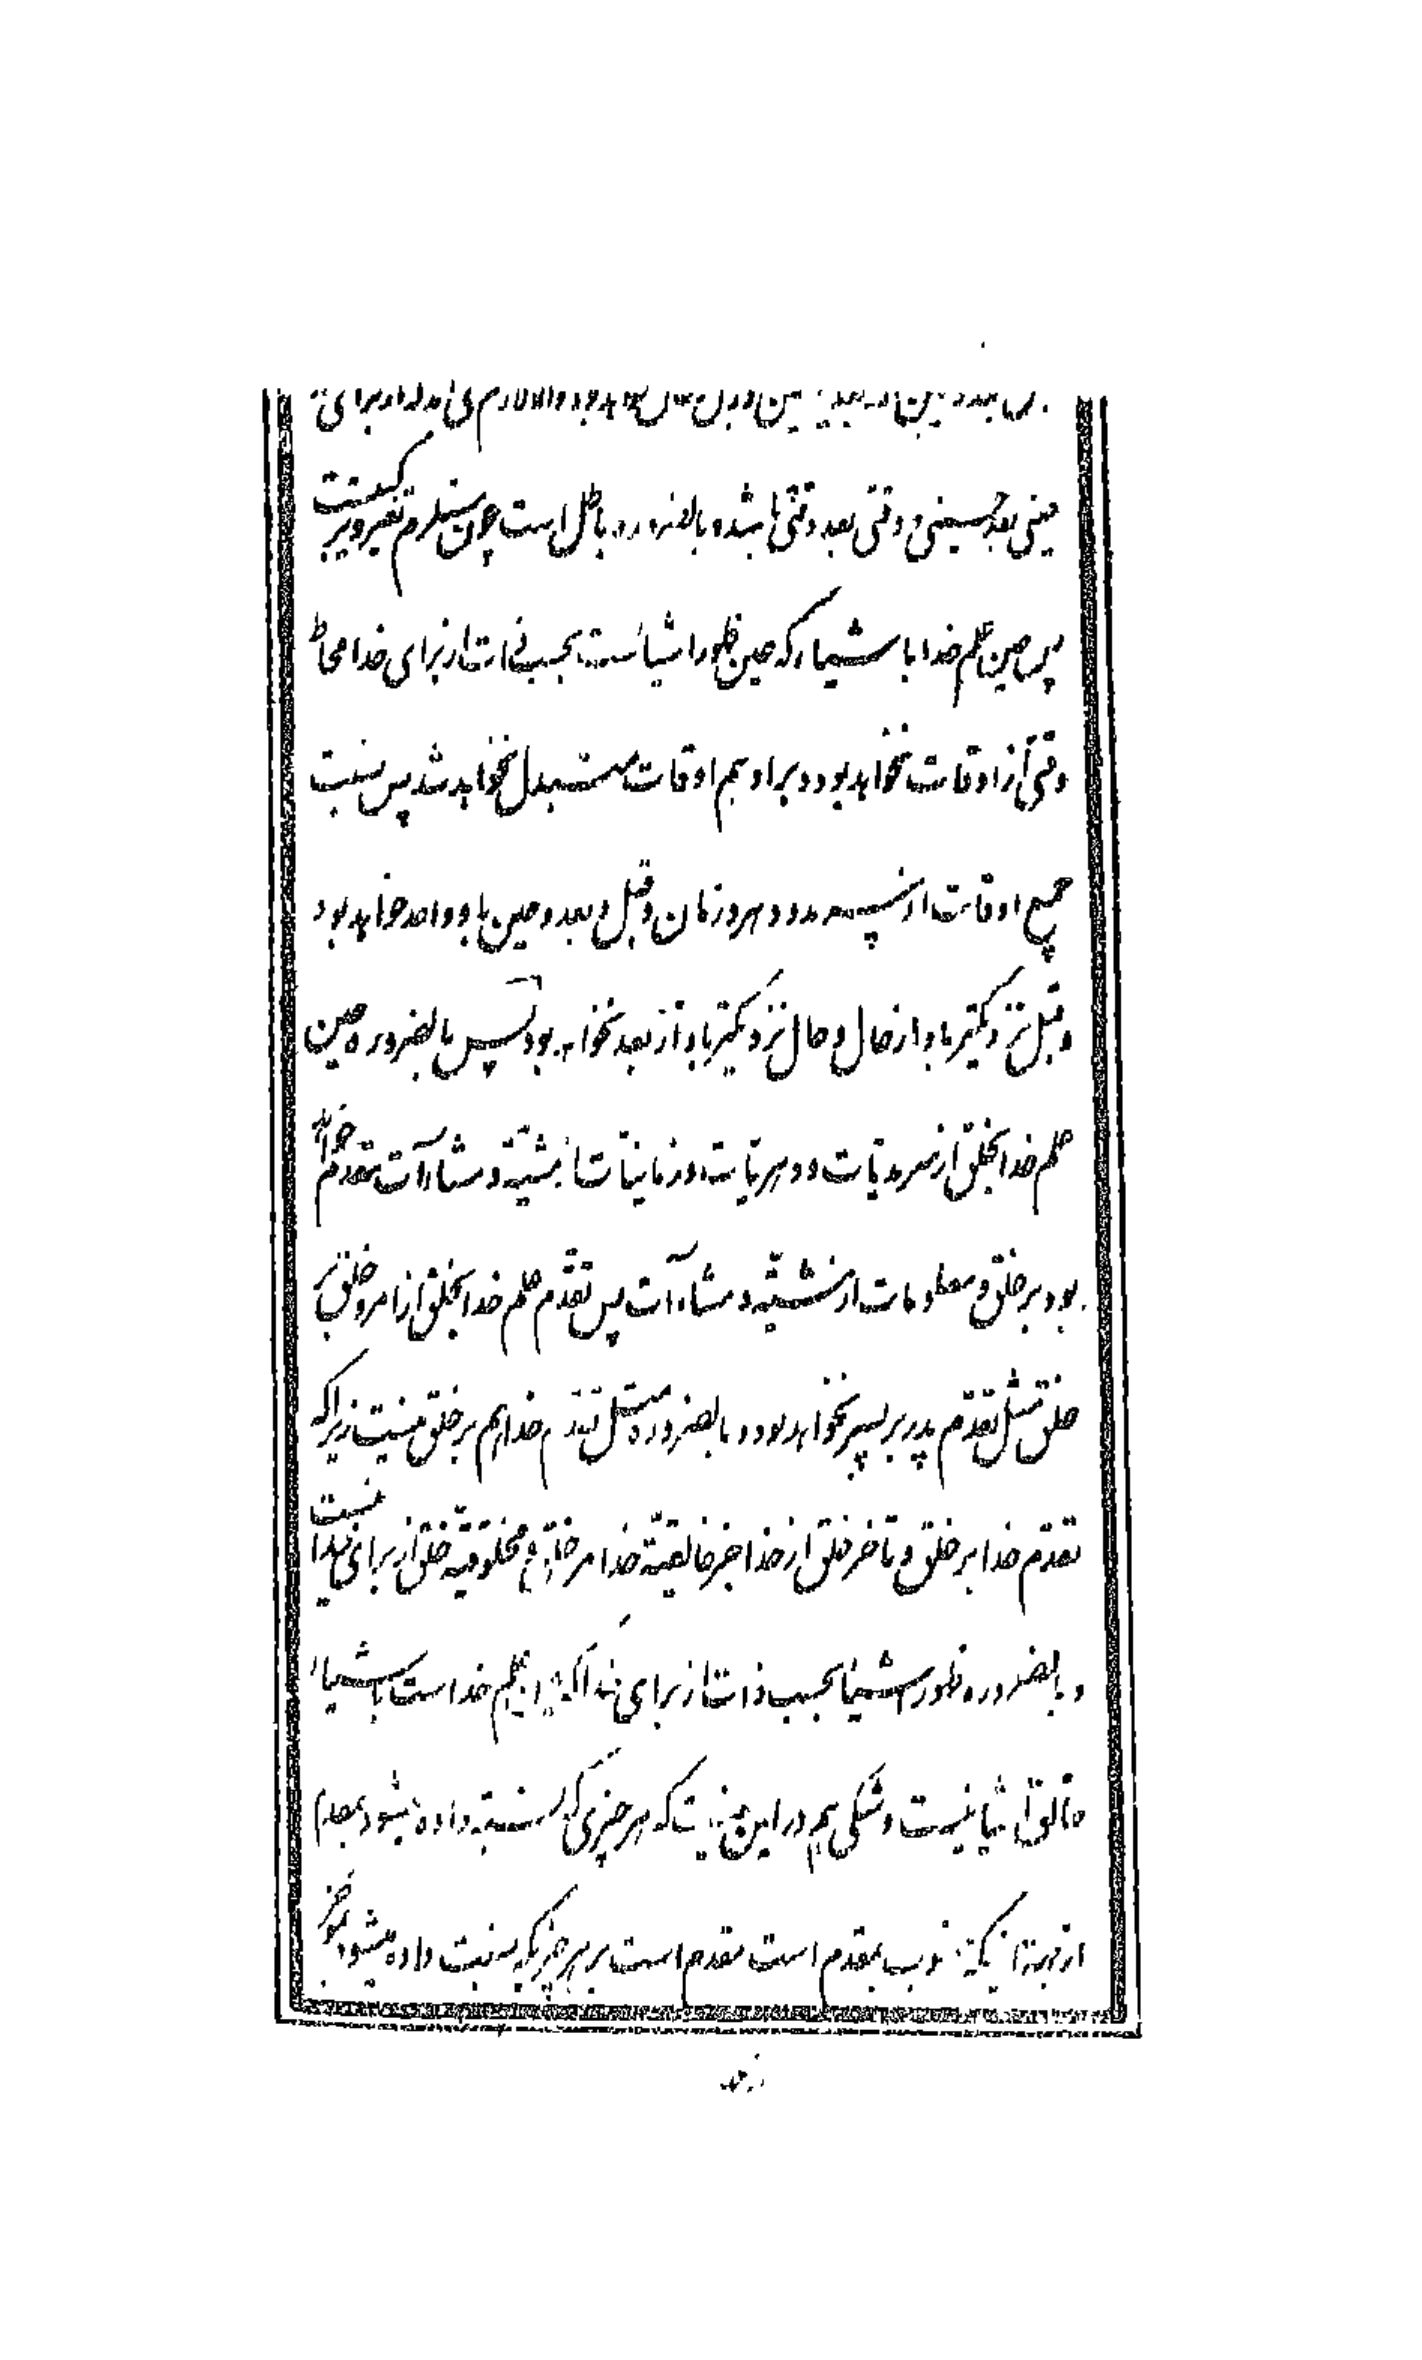 حینی بعد حینی و وقتی بعد وقتی باشد و بالضروره باطل است چون مستلزم تغییر و ترکیب است
پس حین علم خدا باشیاء که حین ظهور اشیا است بحسب ذات از برای خدا محاط
وقتی از اوقات نخواهد بود و بر او هم اوقات متبدل نخواهد شد پس نسبت
جمیع اوقات از سرمد و دهر و زمان و قبل و بعد و حین باو واحد خواهد بود
و قبل نزدیکتر باو از حال و حال نزدیکتر باو از بعد نخواهد بود پس بالضروره حین
علم خدا بخلق از سرمدیات و دهریات و زمانیات از مشیة و مشاءآت مقدم خواهد
بود بر خلق و معلومات از مشیة و مشاءآت پس تقدم علم خدا بخلق از امر و خلق بر
خلق مثل تقدم پدر بر پسر نخواهد بود و بالضروره مثل تقدم خدا هم بر خلق نیست زیراکه
تقدم خدا بر خلق و تاخر خلق از خدا جز خالقیة خدا مر خلق و مخلوقیة خلق از برای خدا نیست
و بالضروره ظهور اشیا بحسب ذات از برای خدا که این علم خداست باشیاء
خالق اشیا نیست و شکی هم در این نیست که هر چیزی که نسبت داده میشود بمقدم
از جهة اینکه منسوب بمقدم است مقدم است بر هر چیزیکه نسبت داده میشود بموخر
از جهة